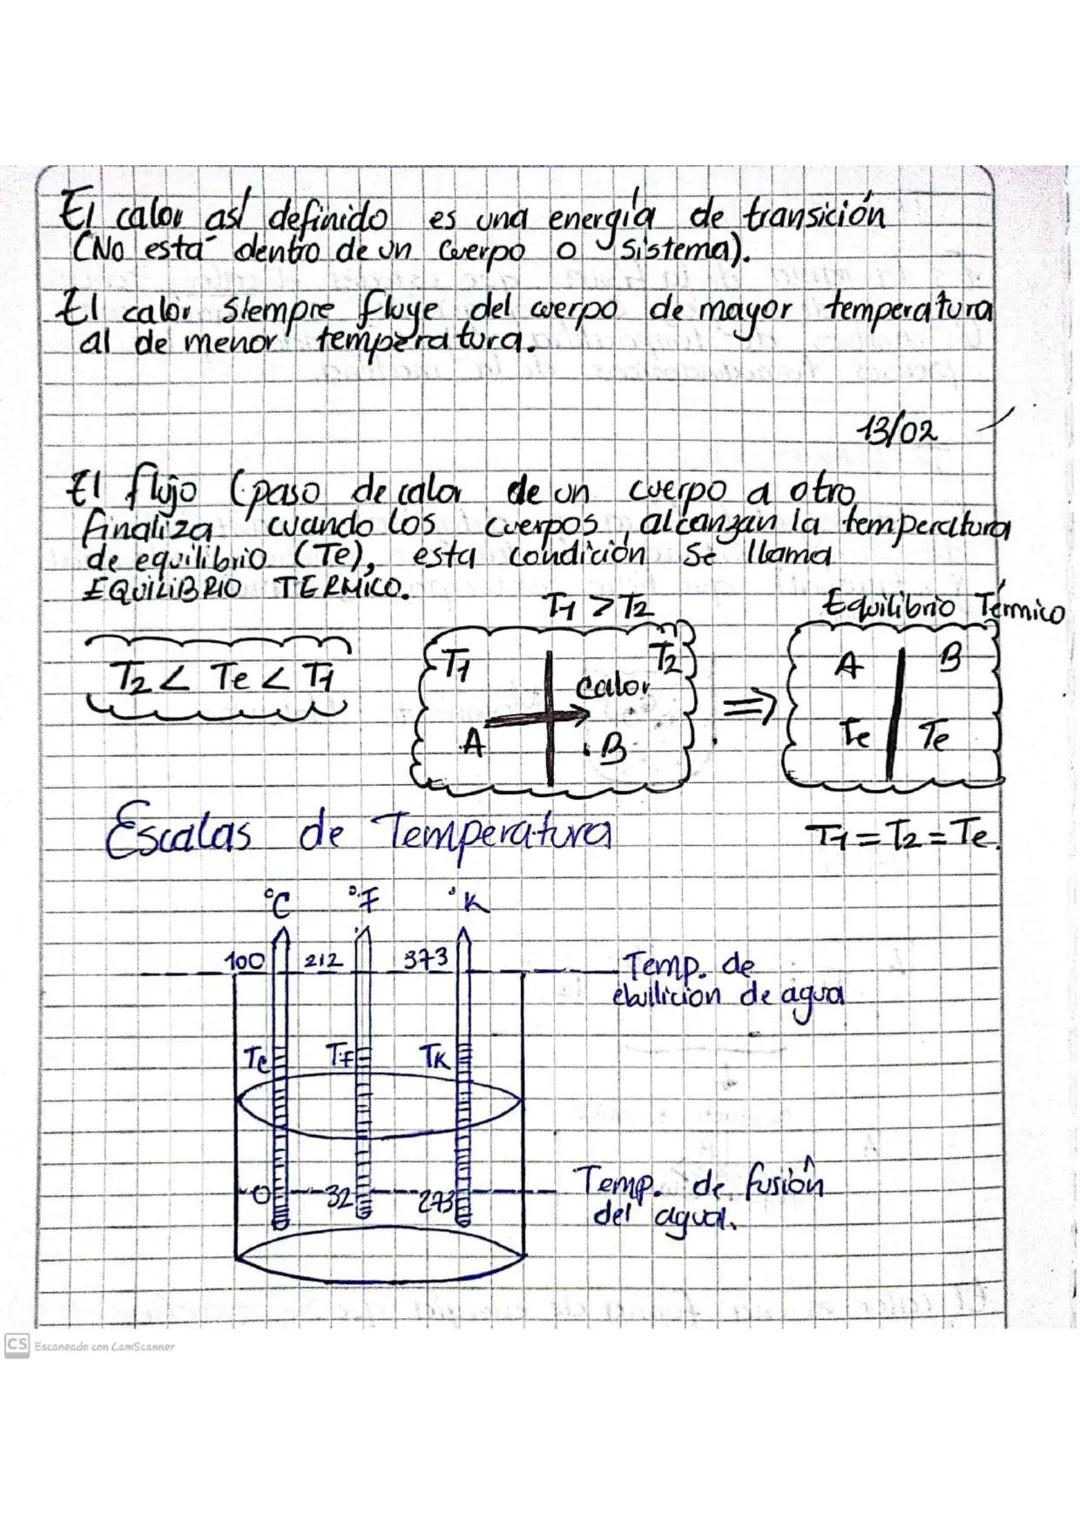 El calor así definido es una energía de transición
(No está dentro de un cuerpo o sistema).
El calor siempre fluye del cuerpo de mayor temperatura
al de menor temperatura.
13/02
El flujo (paso de calor de un cuerpo a otro
finaliza cuando los cuerpos alcanzan la temperatura
de equilibrio (Te), esta condición se llama
EQUILIBRIO TERMICO.
T1 > T2
Equilibrio Térmico
T2 < Te < T1
T1
T2
calor
A
B
⇒
A
B
Te
Te
Escalas de Temperatura
T1 = T2 = Te.
°C °F °K
100 212 373
Temp. de
ebullición de agua
Tc TF TK
0 32 273
Temp. de fusión
del agua.
CS Escaneado con CamScanner